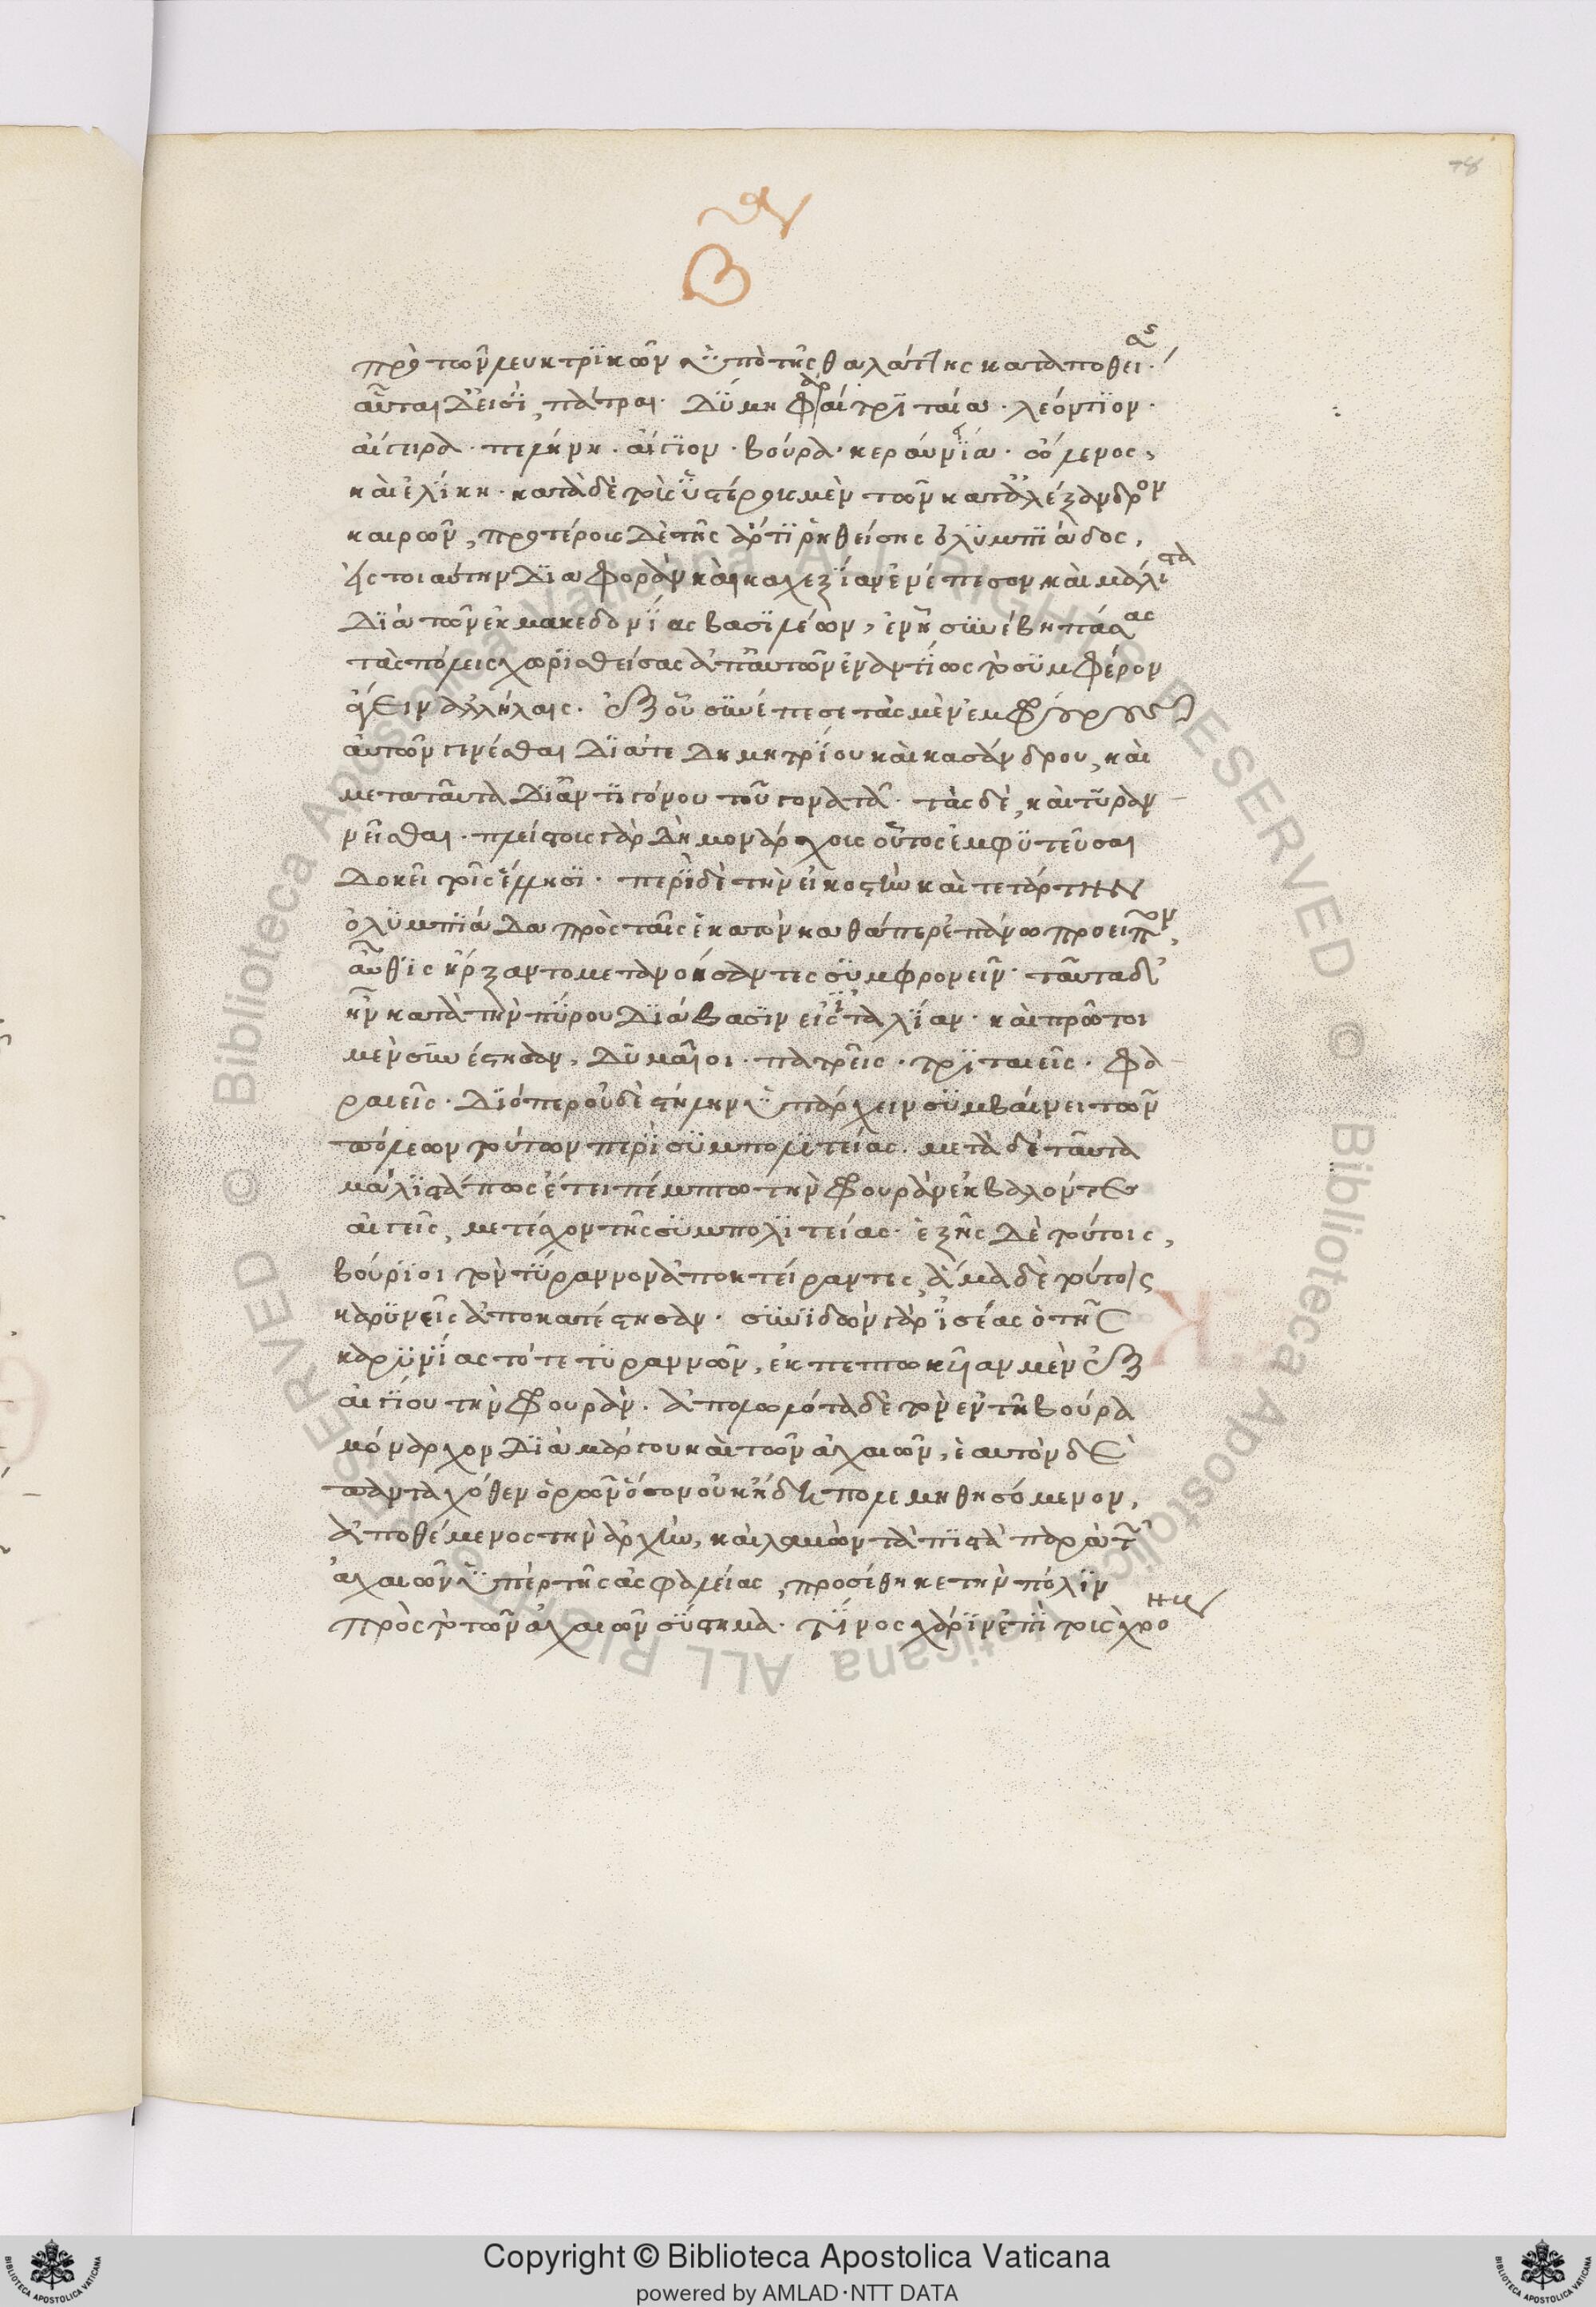 78
Β
πρὸ τῶν λευκτρϊκῶν ὑπὸ τῆς θαλάττης καταποθεισ
αὗται δ εἰσϊ, πάτραι· Δύμη φαραί τρϊταία· λεόντϊον·
αἴγειρα· πελήνη· αἴγϊον· βούρα· κεραύνϊα· ὤλενος,
καὶ ἑλίκη· κατὰ δὲ τοὺς ὑστέρους μὲν τῶν κατ ἀλέξανδρον
καιρῶν, προτέροις δὲ τῆς ἄρτι ῥηθείσης ὀλϋμπϊάδος,
εἰς τοιαύτην δϊαφορὰν καὶ καχεξίαν ἐνέπεσον καὶ μάλιστα
διὰ τῶν ἐκ μακεδονίας βασϊλέων, ἐν ᾗ συνέβη πάσας
τὰς πόλεις χωρϊσθείσας ἀπ αὐτῶν ἐναντίως τὸ σϋμφέρον
ἄγειν ἀλλήλαις· ἐξ οὗ συνέπεσε τὰς μὲν ἐμφρούρους
αὐτῶν γινέσθαι διά τε δημητρίου καὶ κασάνδρου, καὶ
μετα ταῦτα δι ἀντιγόνου τοῦ γονατᾶ· τὰς δὲ, καὶ τϋραν
νεῖσθαι· πλείστοις γὰρ δὴ μονάρχοις οὗτος ἐμφϋτεῦσαι
δοκεῖ τοῖς ἕλλησϊ· περὶ δὲ τὴν εἰκοστὴν καὶ τετάρτην
ὀλϋμπϊάδα πρὸς ταῖς ἑκατὸν καθάπερ ἐπάνω προεῖπον,
αὖθϊς ἤρξαντο μετανοήσαντες σϋμφρονεῖν· ταῦτα δ
ἦν κατὰ τὴν πύρου διάβασϊν εἰς ἰταλίαν· καὶ πρῶτοι
μὲν συνέστησαν, δυμαῖοι· πατρεῖς· τρϊταιεῖς· φα
ραιεῖς· διόπερ οὐδὲ στήλην ὑπάρχειν σϋμβαίνει τῶν
πόλεων τούτων περὶ σϋμπολϊτείας· μετὰ δὲ ταῦτα
μάλιστά πως ἔτει πέμπτω τὴν φουρὰν ἐκβαλόντες
αἰγεῖς, μετέχον τῆς σϋμπολϊτείας· ἑξῆς δὲ τούτοις,
βούρϊοι τὸν τύραννον ἀποκτείραντες, ἅμα δὲ τούτοις
καρϋνεῖς ἀποκατέστησαν· συνϊδὼν γὰρ ἰσέας ὁ τῆς
καρϋνίας τότε τϋραννῶν, ἐκπεπτωκυῖαν μὲν ἐξ
αἰγίου τὴν φουράν· ἀπολωλότα δὲ τὸν ἐν τῆ βούρα
μόναρχον διὰ μάργου καὶ τῶν ἀχαιῶν, ἑαυτὸν δὲ
πανταχόθεν ὁρῶν ὅσον οὐκ ἤδη πολεμηθησόμενον,
ἀποθέμενος τὴν ἀρχὴν, καὶ λαβὼν τὰ πιστὰ παρὰ τ
ἀχαιῶν ὑπὲρ τῆς ἀσφαλείας, προσέθηκε τὴν πόλϊν
πρὸς τὸ τῶν ἀχαιῶν σύστημα· τίνος χάρϊν ἐπὶ τοὺς χρο
Copyright © Biblioteca Apostolica Vaticana
powered by AMLAD·NTT DATA